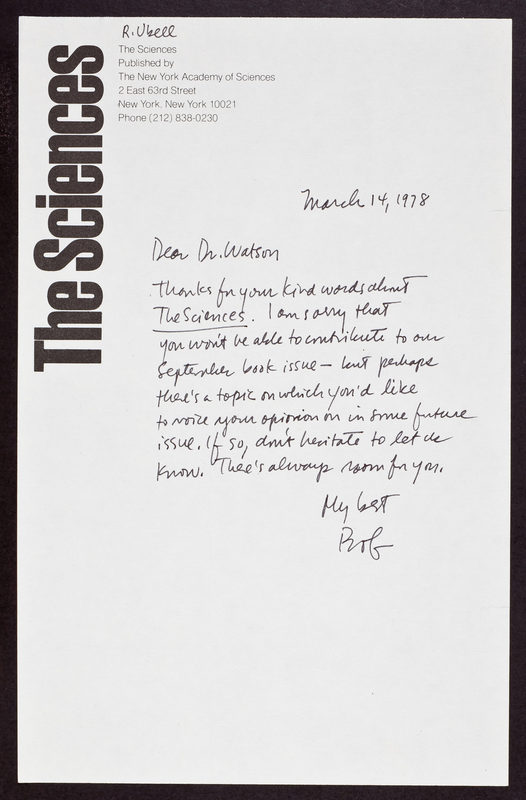 R. Ubell
The Sciences
The Sciences
Published by
The New York Academy of Sciences
2 East 63rd Street
New York, New York 10021
Phone (212) 838-0230
March 14, 1978
Dear Dr. Watson
Thanks for your kind words about
The Sciences. I am sorry that
you won't be able to contribute to our
September book issue — but perhaps
there's a topic on which you'd like
to voice your opionion on in some future
issue. If so, don't hesitate to let us
know. There's always room for you.
My best
Bob